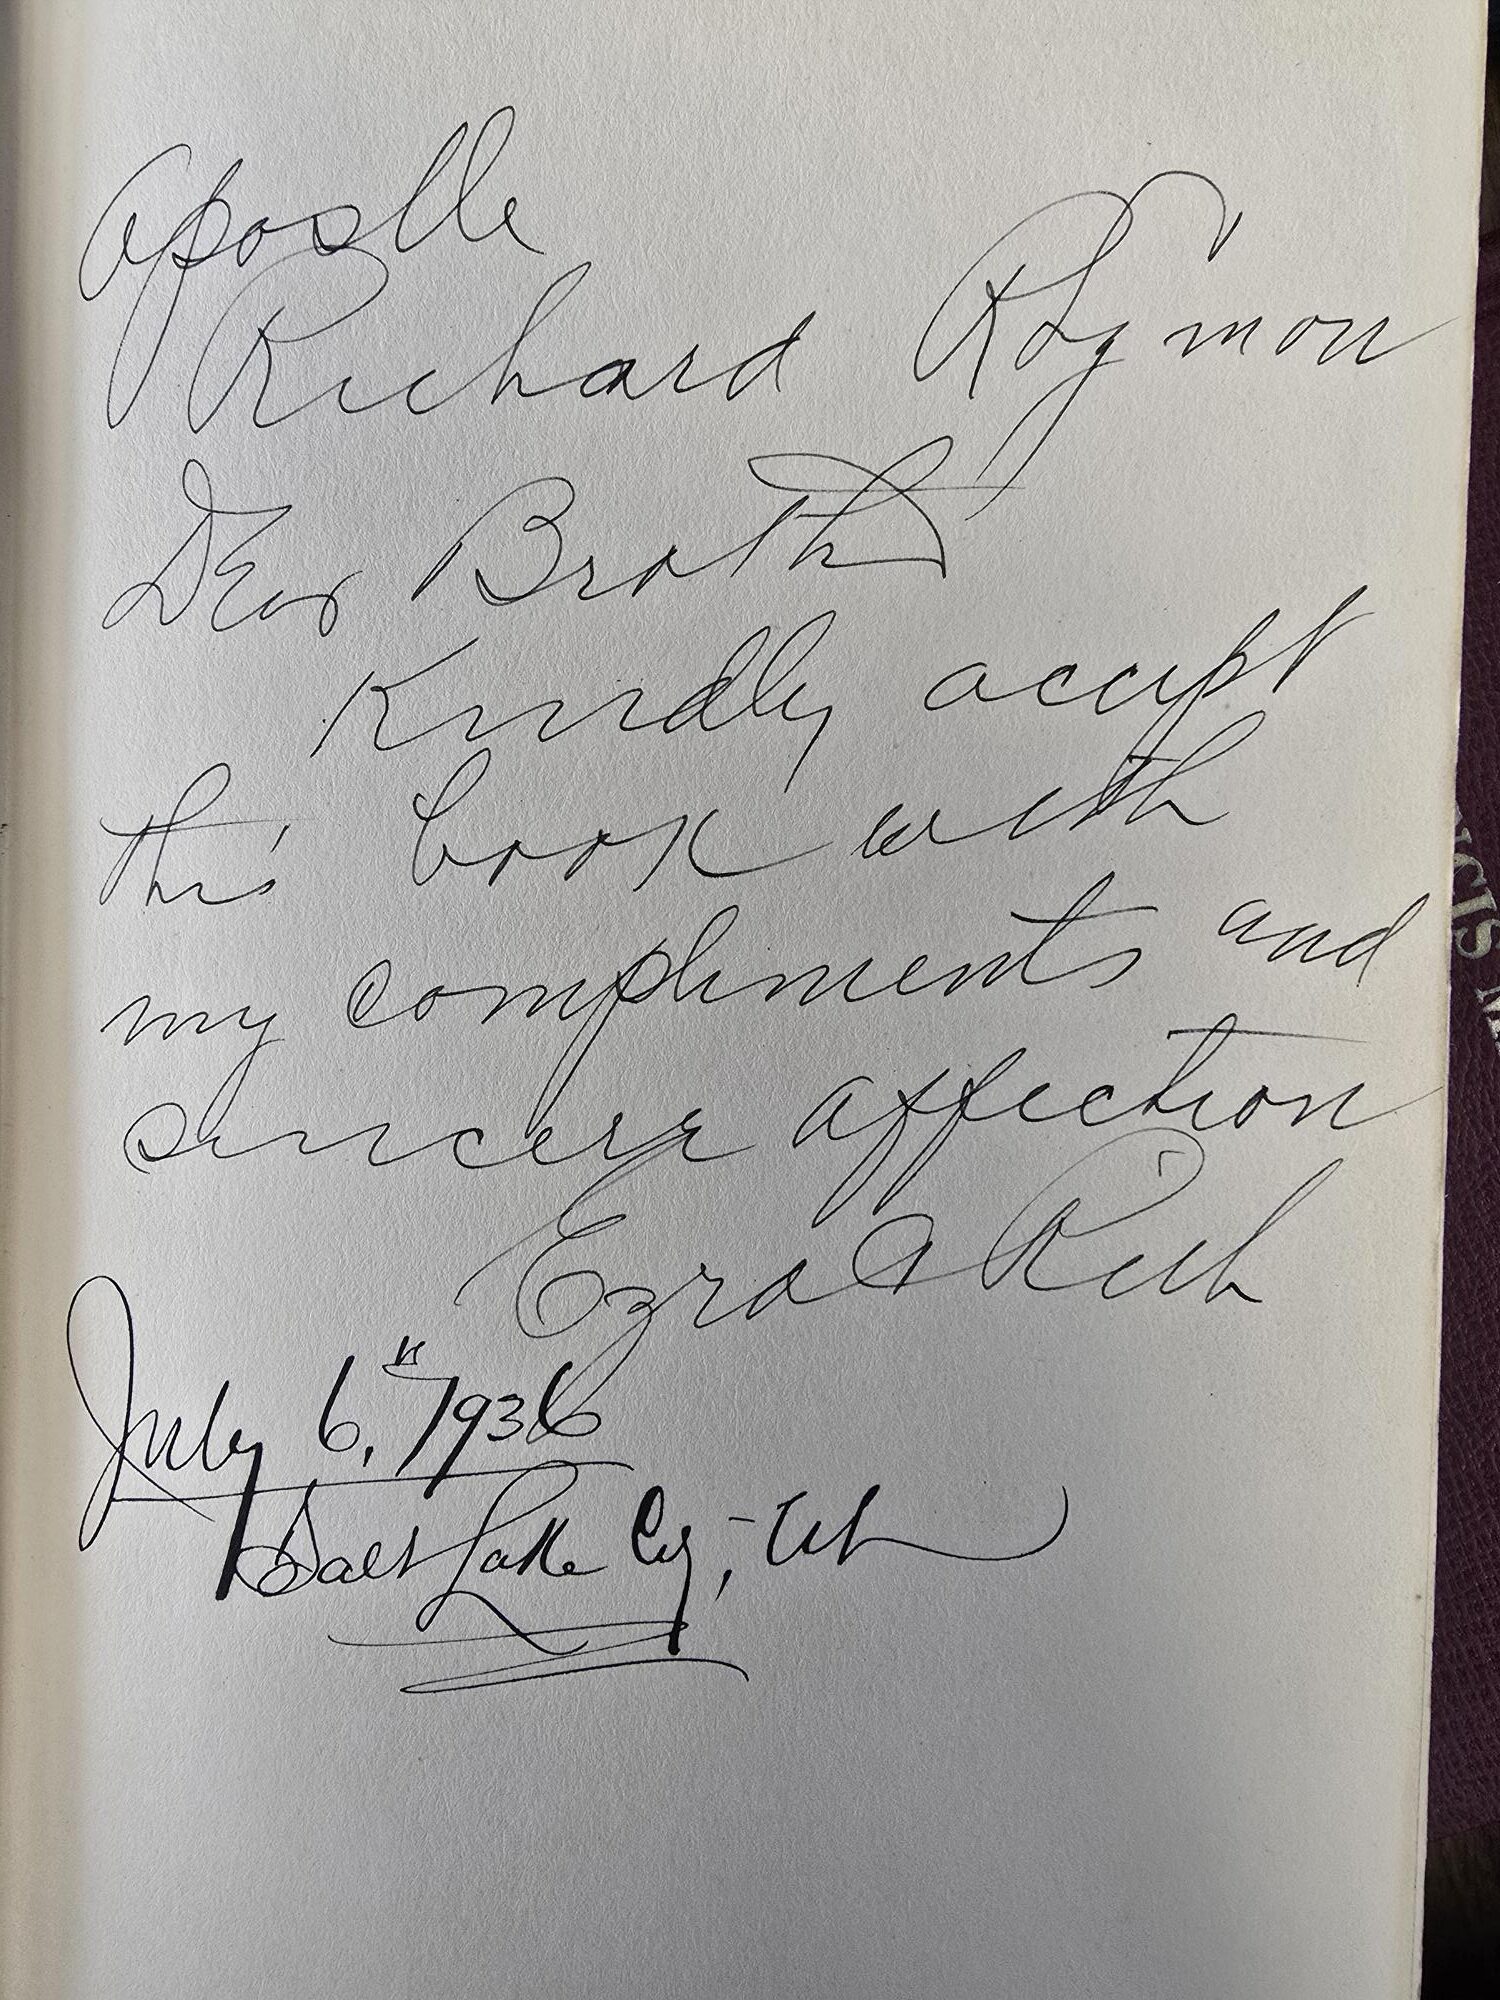 Apostle
Richard R Lyman
Dear Broth
Kindly accept
this book with
my compliments and
sincere affection
Ezra C Rich
July 6, th 1936
Salt Lake Cy, - Ut